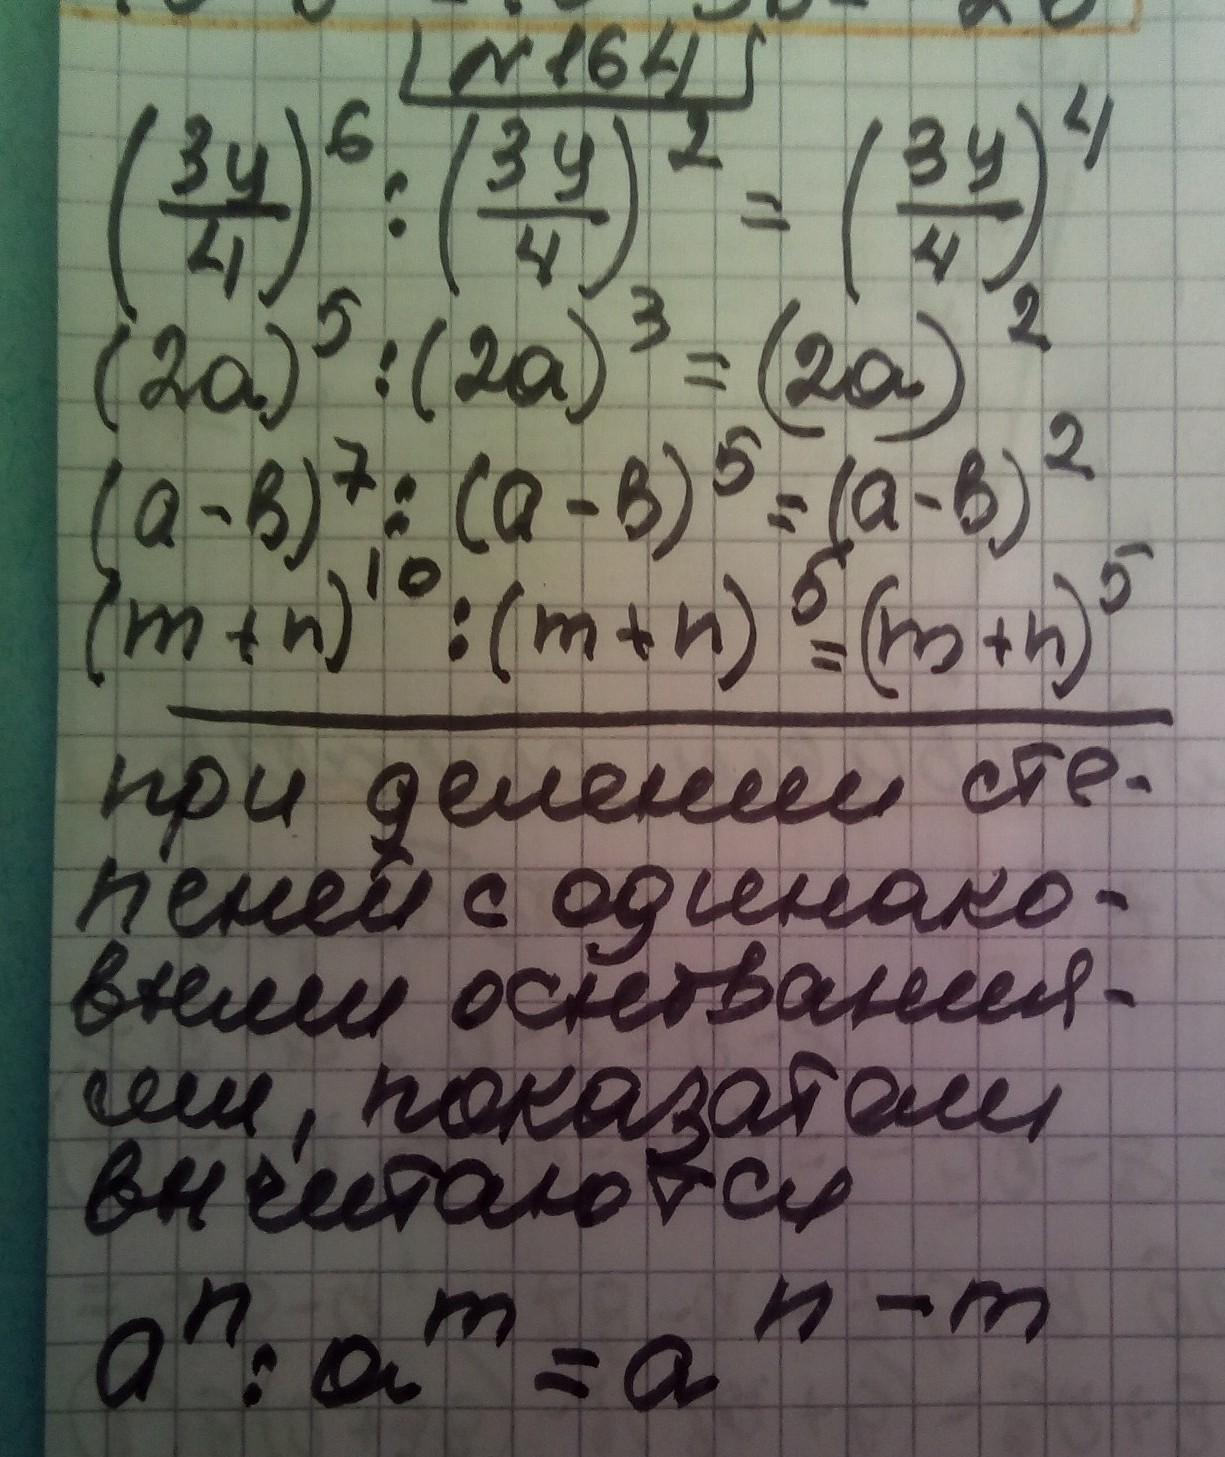 №164
(3y/4)^6 : (3y/4)^2 = (3y/4)^4
(2a)^5 : (2a)^3 = (2a)^2
(a-b)^7 : (a-b)^5 = (a-b)^2
(m+n)^10 : (m+n)^5 = (m+n)^5
при делении сте-
пеней с одинако-
выми основания-
ми, показатели
вычитаются
a^n : a^m = a^(n-m)